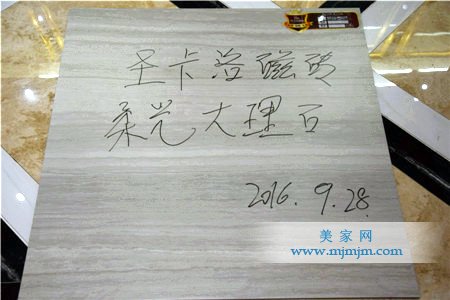 圣卡洛磁砖
柔光大理石
2016.9.28
美家网
www.mjmjm.com